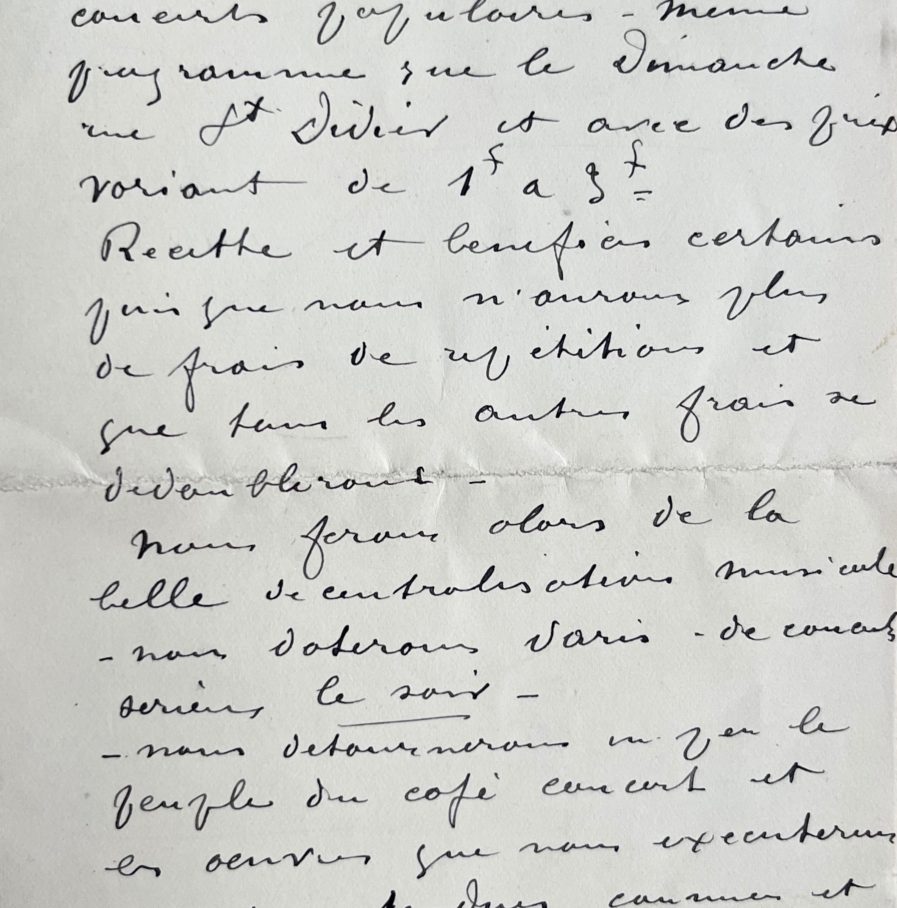 concerts populaires - même
programme que le Dimanche
rue St Didier et avec des prix
variant de 1f a 3f
Recette et benefices certains
puisque nous n'aurons plus
de frais de repétitions et
que tous les autres frais se
dedoublerons -
Nous ferons alors de la
belle decentralisations musicale
- nous doterons Paris - de concerts
serieux le soir -
- nous detournerons un peu le
peuple du café concert et
les oeuvres que nous executerons
connues et